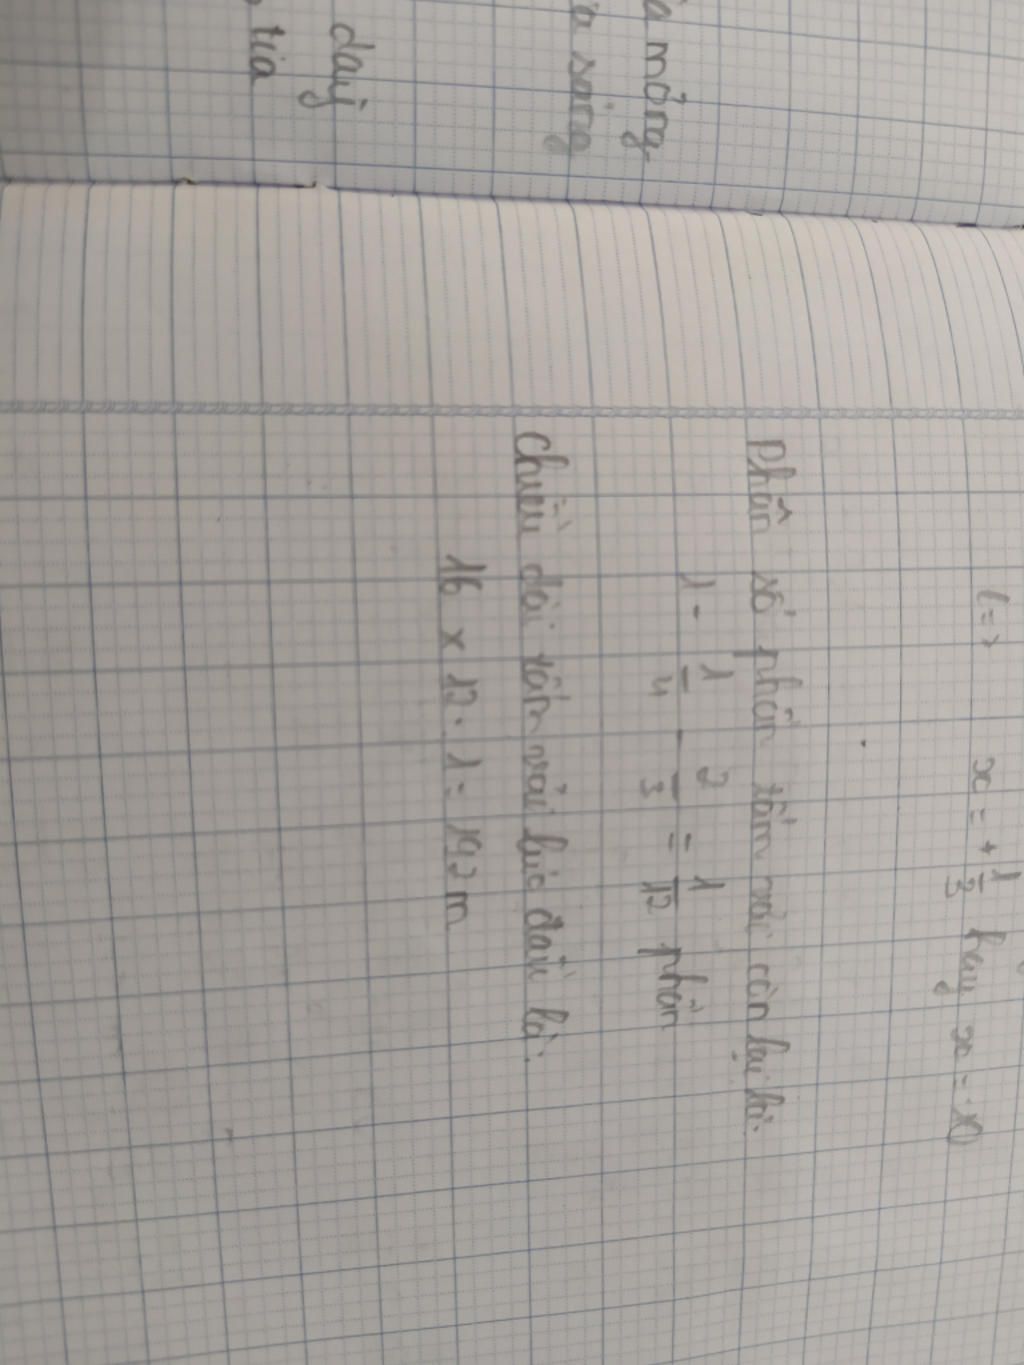 a mỏng
a sáng
dày
tia
(=> x = + 1/3 hay x = - 
Phân số phần tấm vải còn lại là:
1 - 1/4 - 2/3 = 1/12 phần
Chiều dài tấm vải lúc đầu là:
16 x 12 . 1 = 192 m